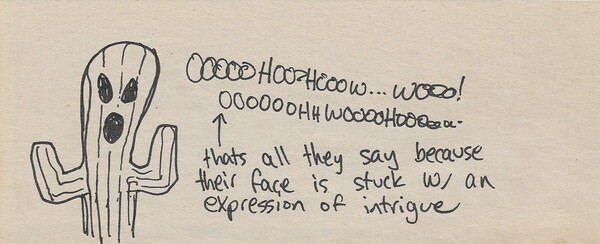 OOOOOHOO?HOOOW... WOOO!
OOOOOOHHWOOOOHOOOooa.
thats all they say because
their face is stuck w/ an
expression of intrigue